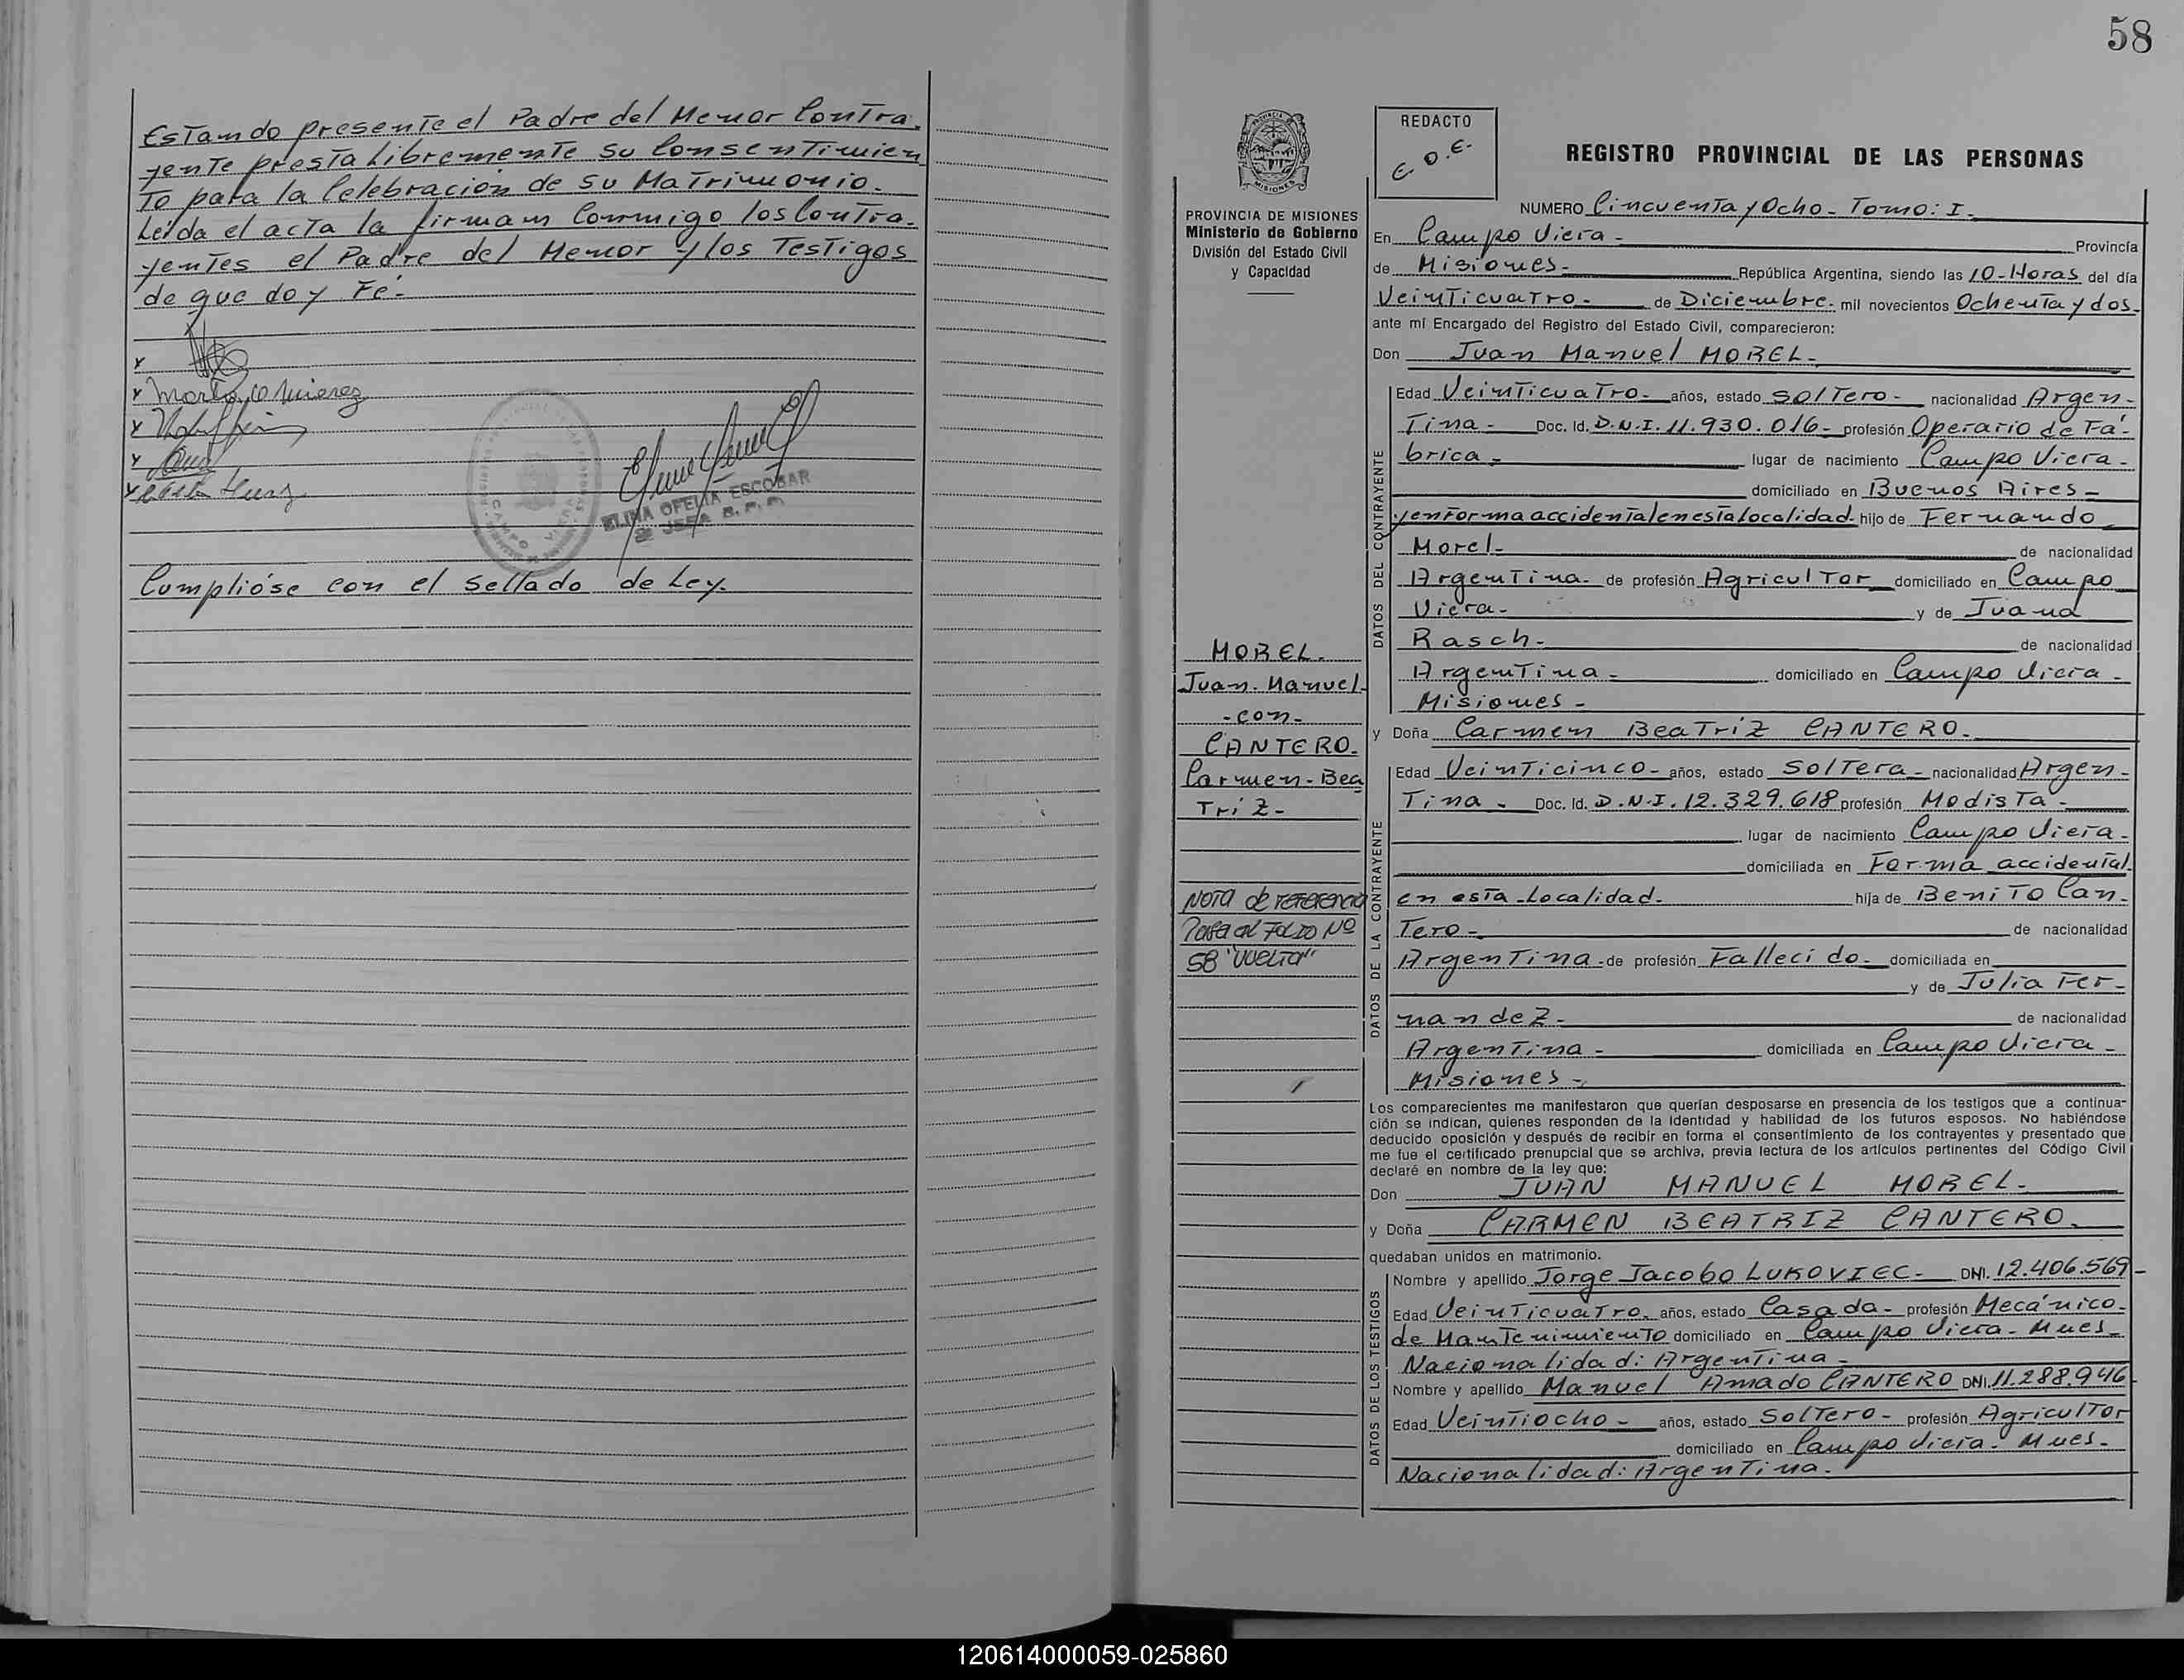 Estando presente el Padre del Menor Contra.
yente presta Libremente su Consentimien
to para la Celebración de su Matrimonio.
Leída el acta la firman Conmigo los Contra.
yentes el Padre del Menor y los Testigos
de que doy Fe.-
ELINA OFELIA ESCOBAR
Cumplióse con el Sellado de Ley.
58
PROVINCIA DE MISIONES
Ministerio de Gobierno
División del Estado Civil
y Capacidad
MOREL.
Juan. Manuel.
-con-
CANTERO.
Carmen-Bea
Triz-
NOTA de referencia
Pasa al FOLIO Nº
58 "VUELTA"
REDACTO
E.O.E.
REGISTRO PROVINCIAL DE LAS PERSONAS
NUMERO Cincuenta y Ocho- Tomo: I-
En Campo Viera- Provincia
de Misiones- República Argentina, siendo las 10-Horas del día
Veinticuatro- de Diciembre- mil novecientos Ochenta y dos-
ante mí Encargado del Registro del Estado Civil, comparecieron:
Don Juan Manuel MOREL-
DATOS DEL CONTRAYENTE
Edad Veinticuatro- años, estado Soltero- nacionalidad Argen-
Tina- Doc. Id. D.N.I. 11.930.016- profesión Operario de Fá-
brica- lugar de nacimiento Campo Viera-
domiciliado en Buenos Aires-
y en Forma accidental en esta localidad- hijo de Fernando
Morel- de nacionalidad
Argentina- de profesión Agricultor domiciliado en Campo
Viera- y de Juana
Rasch- de nacionalidad
Argentina- domiciliado en Campo Viera-
Misiones-
y Doña Carmen Beatriz CANTERO-
DATOS DE LA CONTRAYENTE
Edad Veinticinco- años, estado Soltera- nacionalidad Argen-
Tina- Doc. Id. D.N.I. 12.329.618 profesión Modista-
lugar de nacimiento Campo Viera-
domiciliada en Forma accidental
en esta Localidad- hija de Benito Can-
Tero- de nacionalidad
Argentina- de profesión Fallecido- domiciliada en
y de Julia Fer-
nandez- de nacionalidad
Argentina- domiciliada en Campo Viera-
Misiones-
Los comparecientes me manifestaron que querían desposarse en presencia de los testigos que a continua-
ción se indican, quienes responden de la identidad y habilidad de los futuros esposos. No habiéndose
deducido oposición y después de recibir en forma el consentimiento de los contrayentes y presentado que
me fue el certificado prenupcial que se archiva, previa lectura de los artículos pertinentes del Código Civil
declaré en nombre de la ley que:
Don JUAN MANUEL MOREL-
y Doña CARMEN BEATRIZ CANTERO-
quedaban unidos en matrimonio.
DATOS DE LOS TESTIGOS
Nombre y apellido Jorge Jacobo LUKOVIEC- DNI. 12.406.569-
Edad Veinticuatro- años, estado Casada- profesión Mecánico-
de Mantenimiento domiciliado en Campo Viera- Mnes-
Nacionalidad: Argentina-
Nombre y apellido Manuel Amado CANTERO DNI. 11.288.946-
Edad Veintiocho- años, estado Soltero- profesión Agricultor
domiciliado en Campo Viera- Mnes-
Nacionalidad: Argentina-
120614000059-025860